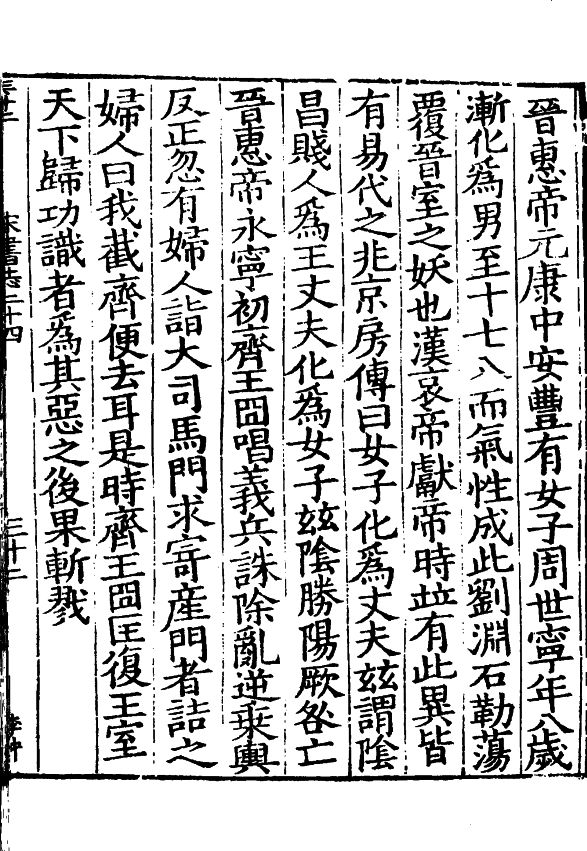 晉惠帝元康中安豐有女子周世寧年八歲
漸化為男至十七八而氣性成此劉淵石勒蕩
覆晉室之妖也漢哀帝獻帝時並有此異皆
有易代之兆京房傳曰女子化為丈夫玆謂陰
昌賤人為王丈夫化為女子玆陰勝陽厥咎亡
晉惠帝永寧初齊王冏唱義兵誅除亂逆乗輿
反正忽有婦人詣大司馬門求寄産門者詰之
婦人曰我截齊便去耳是時齊王冏匡復王室
天下歸功識者為其惡之後果斬戮
宋書志二十四
三十二